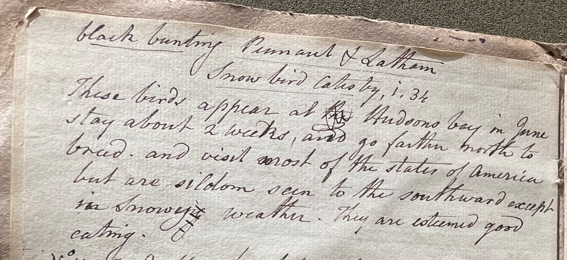 black bunting Pennant & Latham
Snow bird Catesby, i. 34
These birds appear at Hudsons bay in June
stay about 2 weeks, and go farther north to
breed. and visit most of the states of America
but are sildom seen to the southward except
in Snowey weather. They are esteemed good
eating.